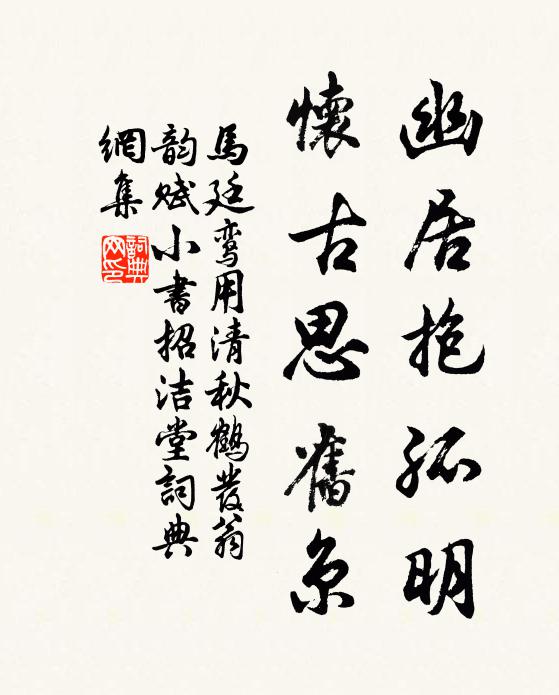 幽居抱孤明
懷古思舊京
馬廷鸾用清秋鶴發翁
韵赋小書招洁堂詞典
網集
詞典網印